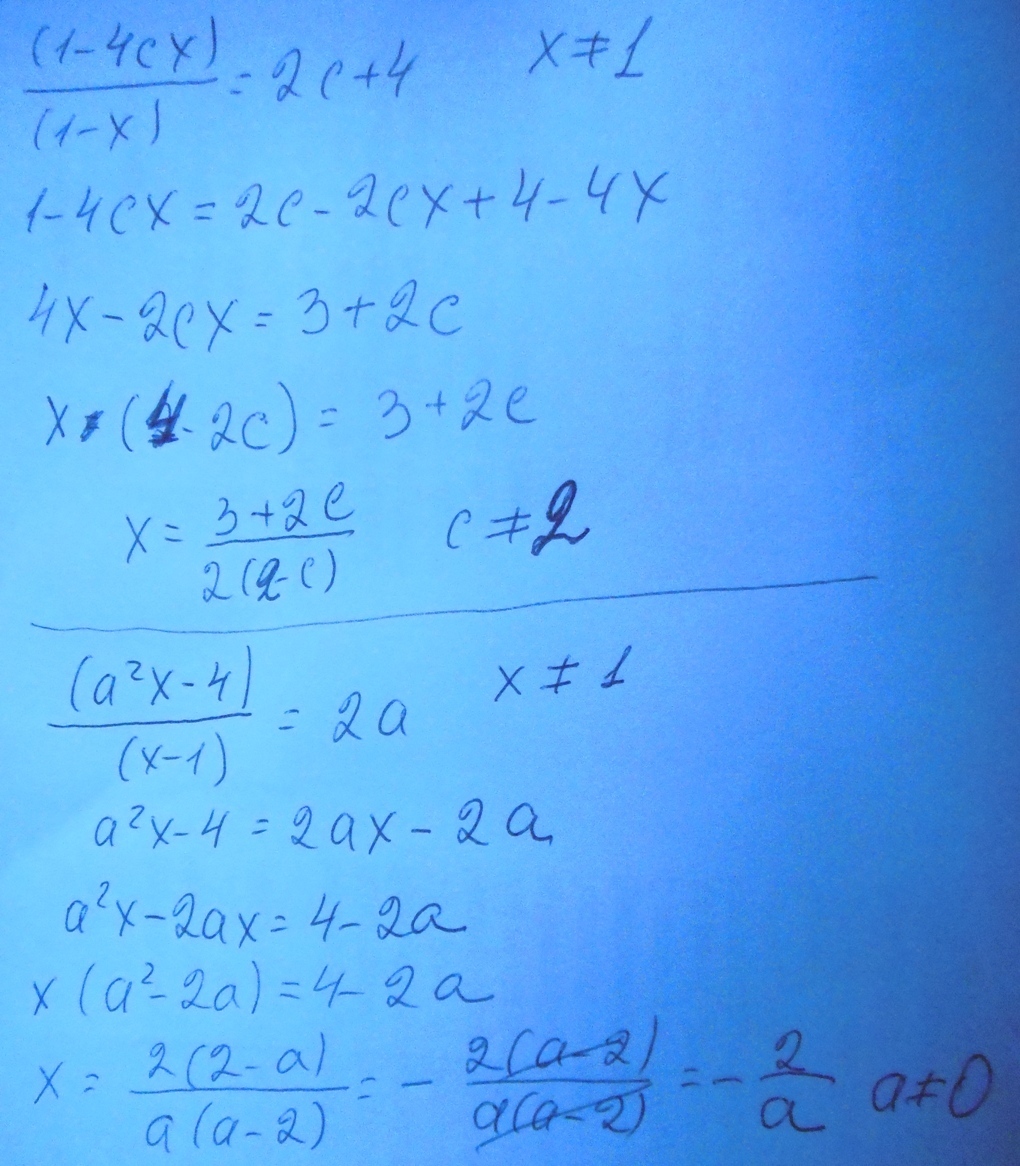 (1-4cx)/(1-x) = 2c+4 x≠1
1-4cx = 2c-2cx+4-4x
4x-2cx = 3+2c
x·(4-2c) = 3+2c
x = (3+2c)/(2(2-c)) c≠2
(a²x-4)/(x-1) = 2a x≠1
a²x-4 = 2ax-2a
a²x-2ax = 4-2a
x(a²-2a) = 4-2a
x = 2(2-a)/a(a-2) = - 2(a-2)/a(a-2) = - 2/a a≠0